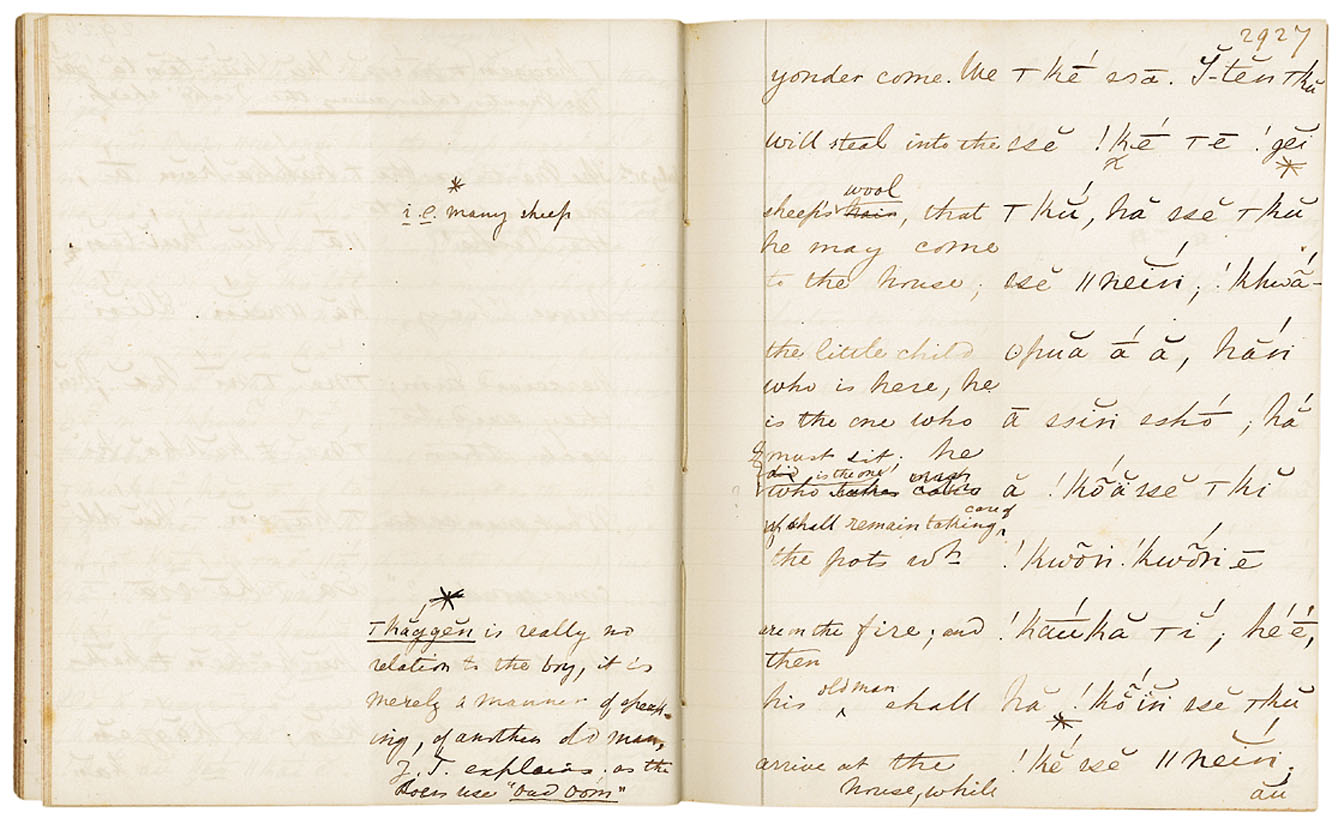 *
i. e. many sheep
*
⊤kăggĕn is really no
relation to the boy, it is
merely a manner of speak-
ing, of another old man,
J. T. explains; as the
Boers use "Oud Oom"
2927
yonder come. We ⊤ké ssā. Ĭ-tĕn ⊤kŭ
will steal into the ssĕ !ké̄ ⊤ē !gĕi
*
wool
sheep's hair, that ⊤kŭ́, hă ssĕ ⊤kŭ
he may come
to the house; ssĕ ǁnĕíṅ; !khwā̆-
the little child ʘpuă ā́ ă, hắṅ
who is here, he
is the one who ā ssĭṅ sshó; hắ
must sit; he
is the one
who takes ă !kõ̆ắ ssĕ ⊤kĭ
care of
shall remain taking
the pots wh !kwõṅ !kwṍṅ ē
are on the fire; and !kăúkă ⊤ĭ́; hé é,
then
old man
his shall hă !kõ̆íṅ ssĕ ⊤kŭ
*
arrive at the !kĕ́ ssĕ ǁnĕíṅ;
house, while ăú